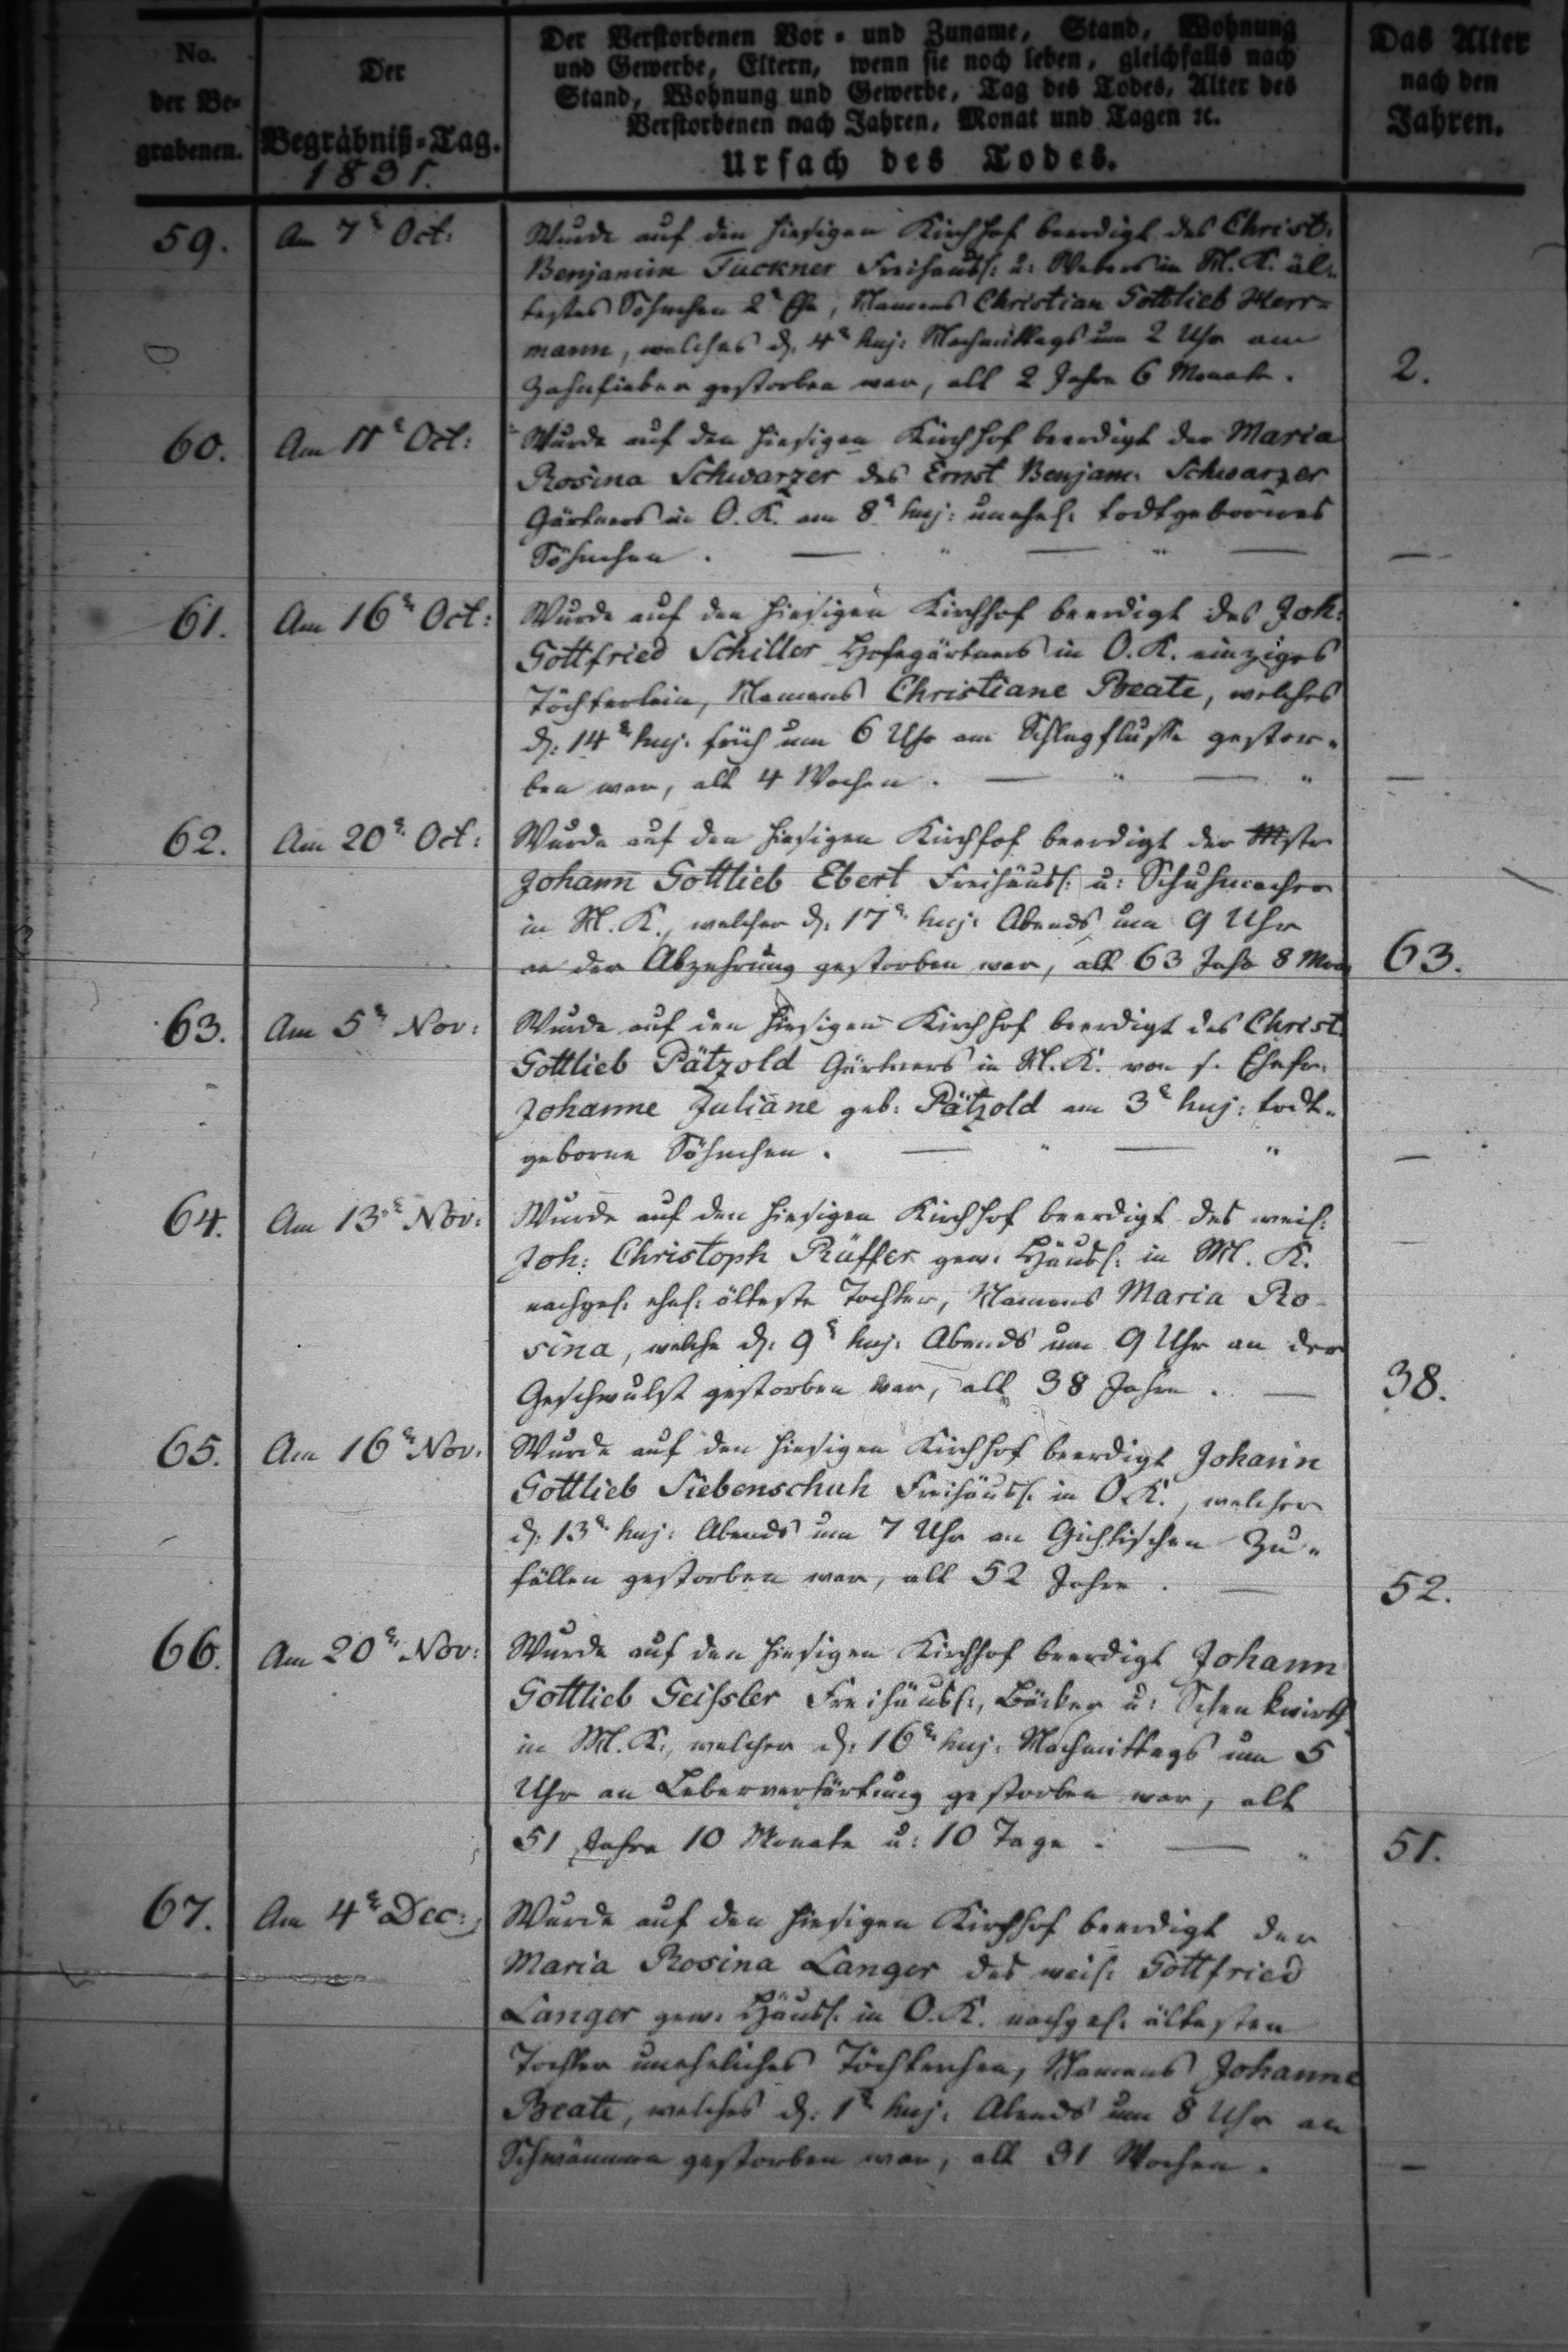 No.
der Be-
grabenen.
Der
Begräbniß-Tag.
1831.
Der Verstorbenen Vor- und Zuname, Stand, Wohnung
und Gewerbe, Eltern, wenn sie noch leben, gleichfalls nach
Stand, Wohnung und Gewerbe, Tag des Todes, Alter des
Verstorbenen nach Jahren, Monat und Tagen ꝛc.
Ursach des Todes.
Das Alter
nach den
Jahren.
59. Am 7t Oct: Wurde auf den hiesigen Kirchhof beerdigt des Christ:
Benjamin Tuckner Freihäusl: u: Webers in M. K. äl-
testes Söhnchen 2r Ehe, Namens Christian Gottlieb Herr-
mann, welches d. 4t huj: Nachmittags um 2 Uhr am
Zahnfieber gestorben war, alt 2 Jahre 6 Monate. 2.
60. Am 11t Oct: Wurde auf den hiesigen Kirchhof beerdigt der Maria
Rosina Schwarzer des Ernst Benjam: Schwarzer
Gärtners in O. K. am 8t huj: unehel: todtgebornes
Söhnchen. — " — " — —
61. Am 16t Oct: Wurde auf den hiesigen Kirchhof beerdigt des Joh:
Gottfried Schiller Hofegärtners in O. K. einziges
Töchterlein, Namens Christiane Beate, welches
d: 14t huj. früh um 6 Uhr am Schlagflusse gestor-
ben war, alt 4 Wochen. — " — " —
62. Am 20t Oct: Wurde auf den hiesigen Kirchhof beerdigt der Mstr
Johann Gottlieb Ebert Freihäusl: u: Schuhmacher
in M. K., welcher d. 17t huj: Abends um 9 Uhr
an der Abzehrung gestorben war, alt 63 Jahr 8 Mon 63.
63. Am 5t Nov: Wurde auf den hiesigen Kirchhof beerdigt des Christ.
Gottlieb Pätzold Gärtners in M. K. von s. Ehefr:
Johanne Juliane geb: Pätzold am 3t huj: todt-
geborne Söhnchen. — " — " —
64. Am 13t Nov: Wurde auf den hiesigen Kirchhof beerdigt des weil:
Joh: Christoph Rüffer gew: Häusl: in M. K.
nachgel: ehel: älteste Tochter, Namens Maria Ro-
sina, welche d: 9t huj. Abends um 9 Uhr an der
Geschwulst gestorben war, alt 38 Jahre. — 38.
65. Am 16t Nov. Wurde auf den hiesigen Kirchhof beerdigt Johann
Gottlieb Siebenschuh Freihäusl: in O. K., welcher
d: 13t huj: Abends um 7 Uhr an Gichtischen Zu-
fällen gestorben war, alt 52 Jahre. — 52.
66. Am 20t Nov: Wurde auf den hiesigen Kirchhof beerdigt Johann
Gottlieb Geißler Freihäusl:, Bäcker u: Schenkwirth
in M. K:, welcher d: 16t huj: Nachmittags um 5
Uhr an Leberverhärtung gestorben war, alt
51 Jahre 10 Monate u: 10 Tage. — " 51.
67. Am 4t Dec: Wurde auf den hiesigen Kirchhof beerdigt der
Maria Rosina Langer des weil: Gottfried
Langer gew. Häusl. in O. K. nachgel: ältesten
Tochter uneheliches Töchterchen, Namens Johanne
Beate, welches d: 1t huj: Abends um 8 Uhr an
Schwämmen gestorben war, alt 31 Wochen. —